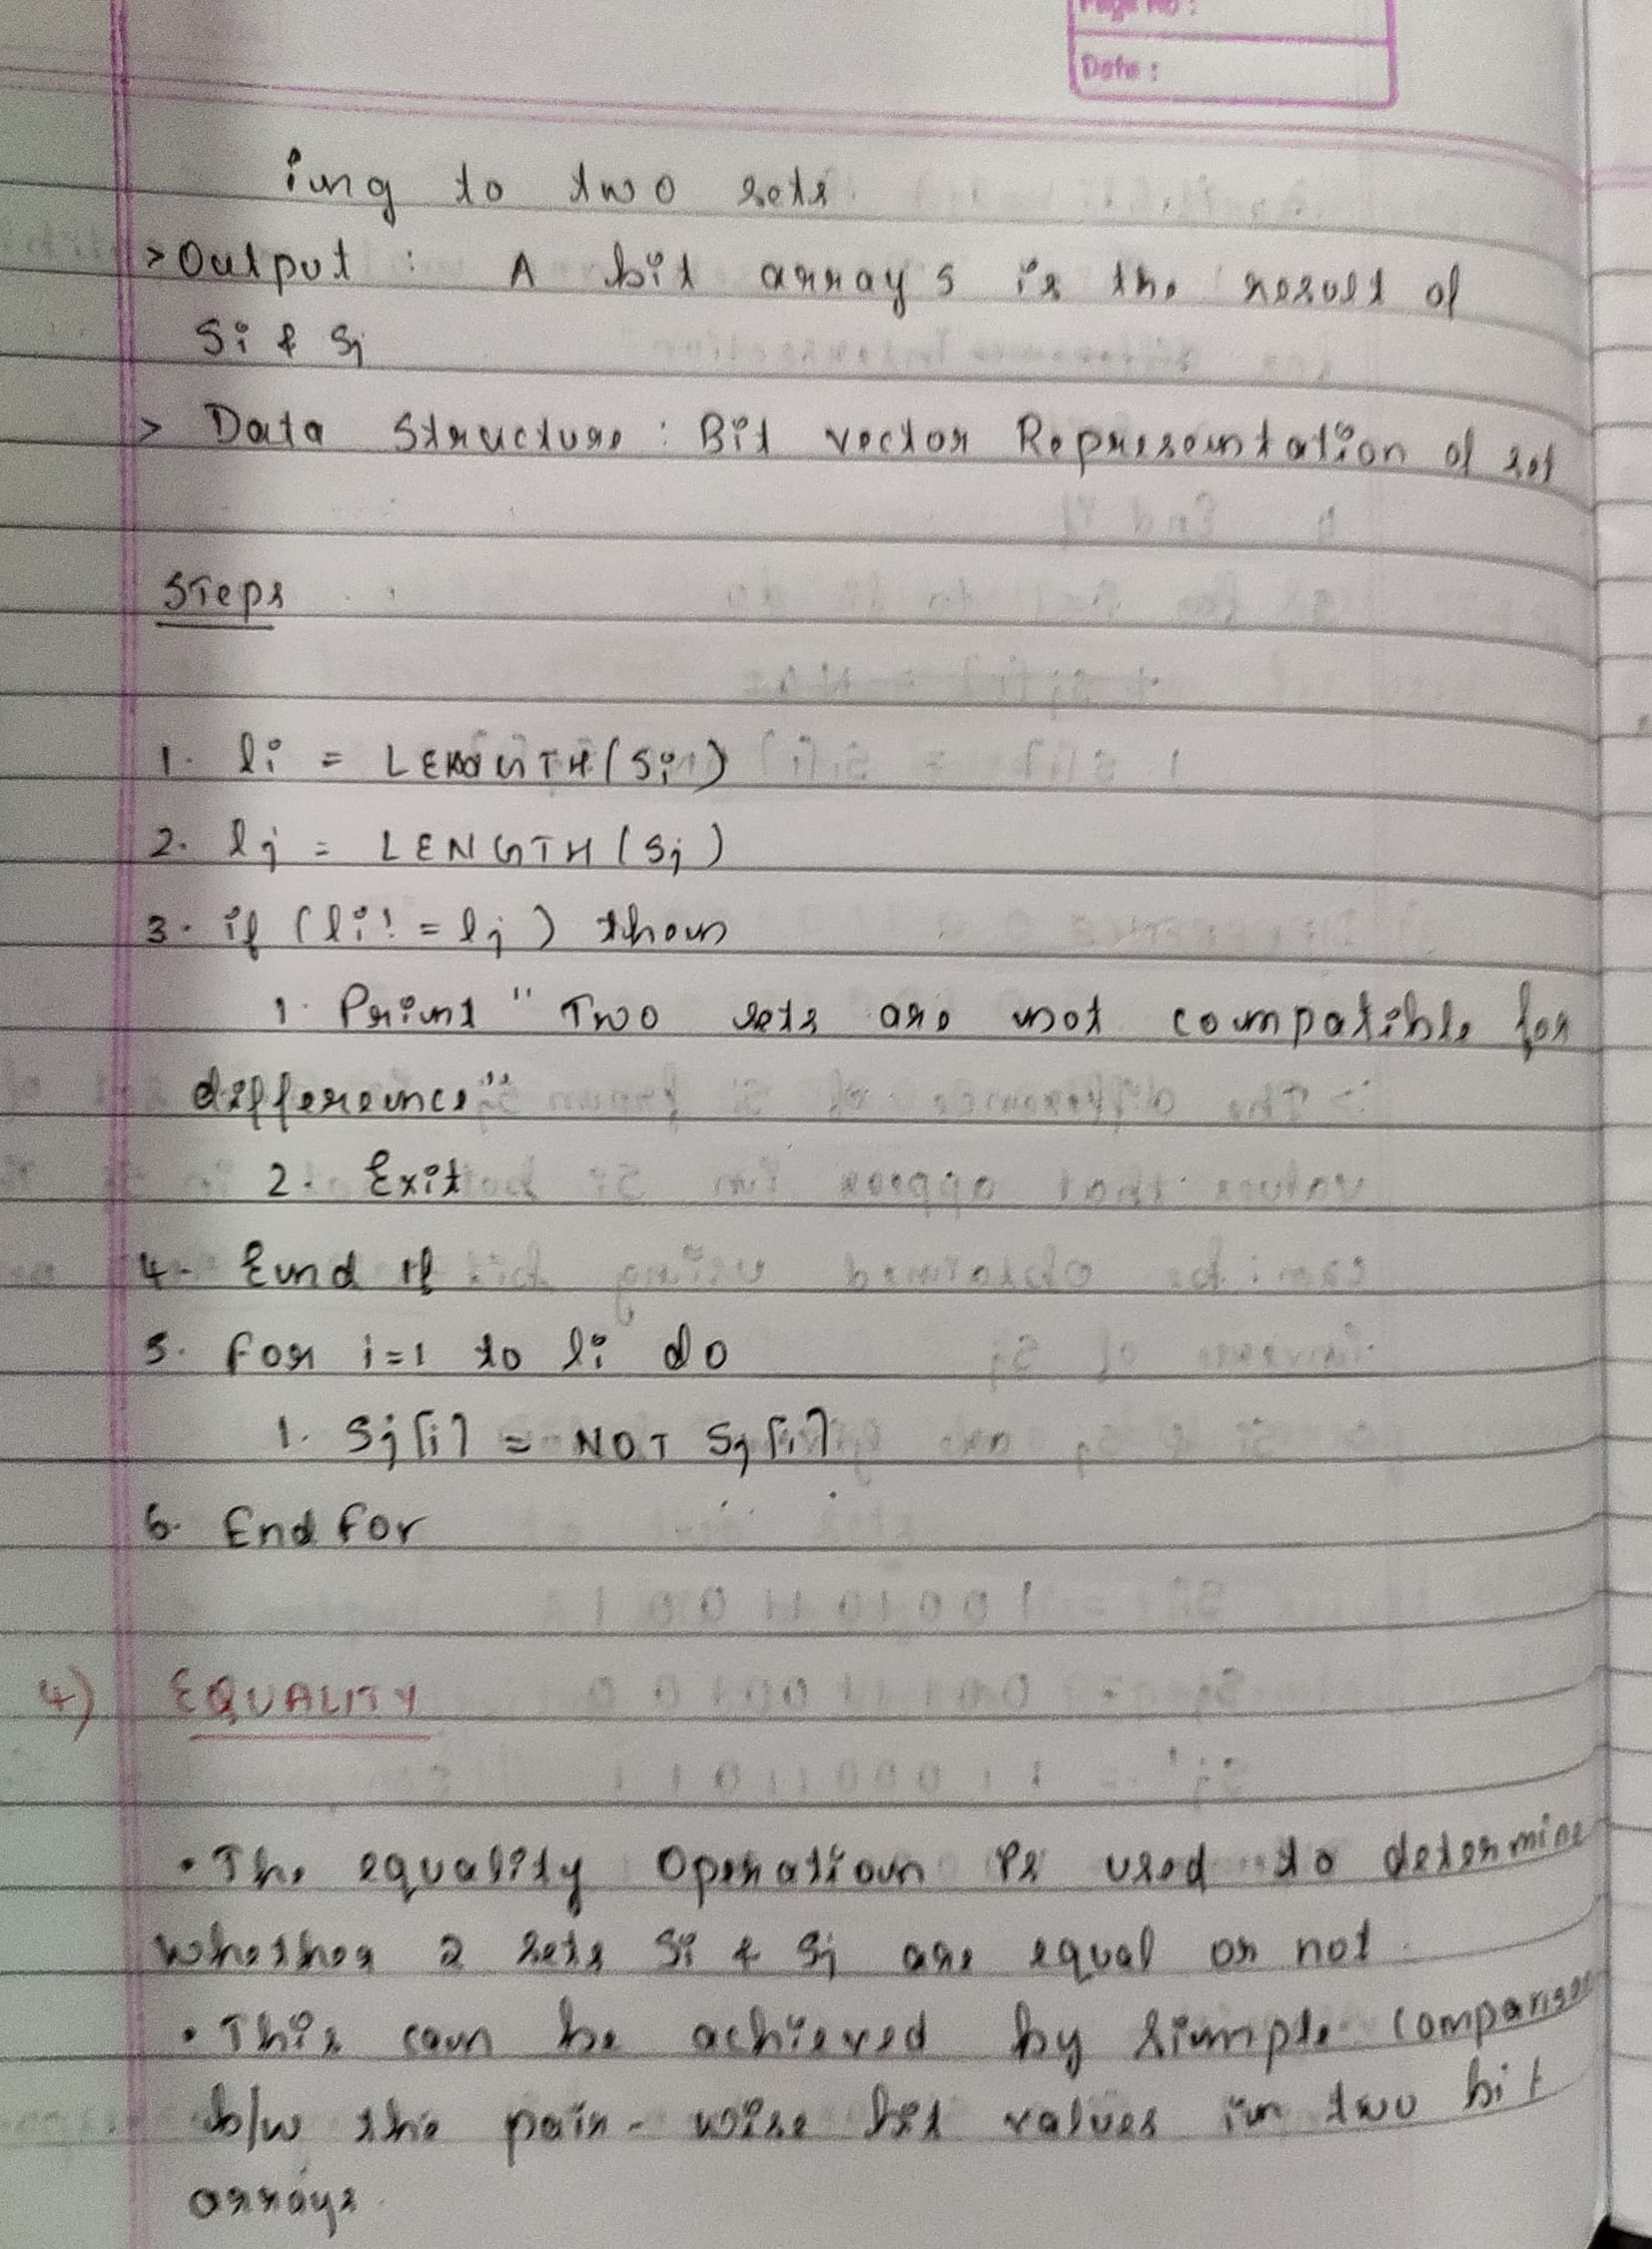 Page No :
Date :
ing to two sets
> Output : A bit array S is the result of
Si & Sj
> Data Structure : Bit vector Representation of set
Steps
1. li = LENGTH (Si)
2. lj = LENGTH (Sj)
3. if (li != lj) then
1. Print " Two sets are not compatible for
difference"
2. Exit
4. End If
5. For i=1 to li do
1. Sj[i] = NOT Sj[i]
6. End for
4) EQUALITY
• The equality Operation is used to determine
whether 2 sets Si & Sj are equal or not.
• This can be achieved by simple comparison
b/w the pair-wise bit values in two bit
arrays.